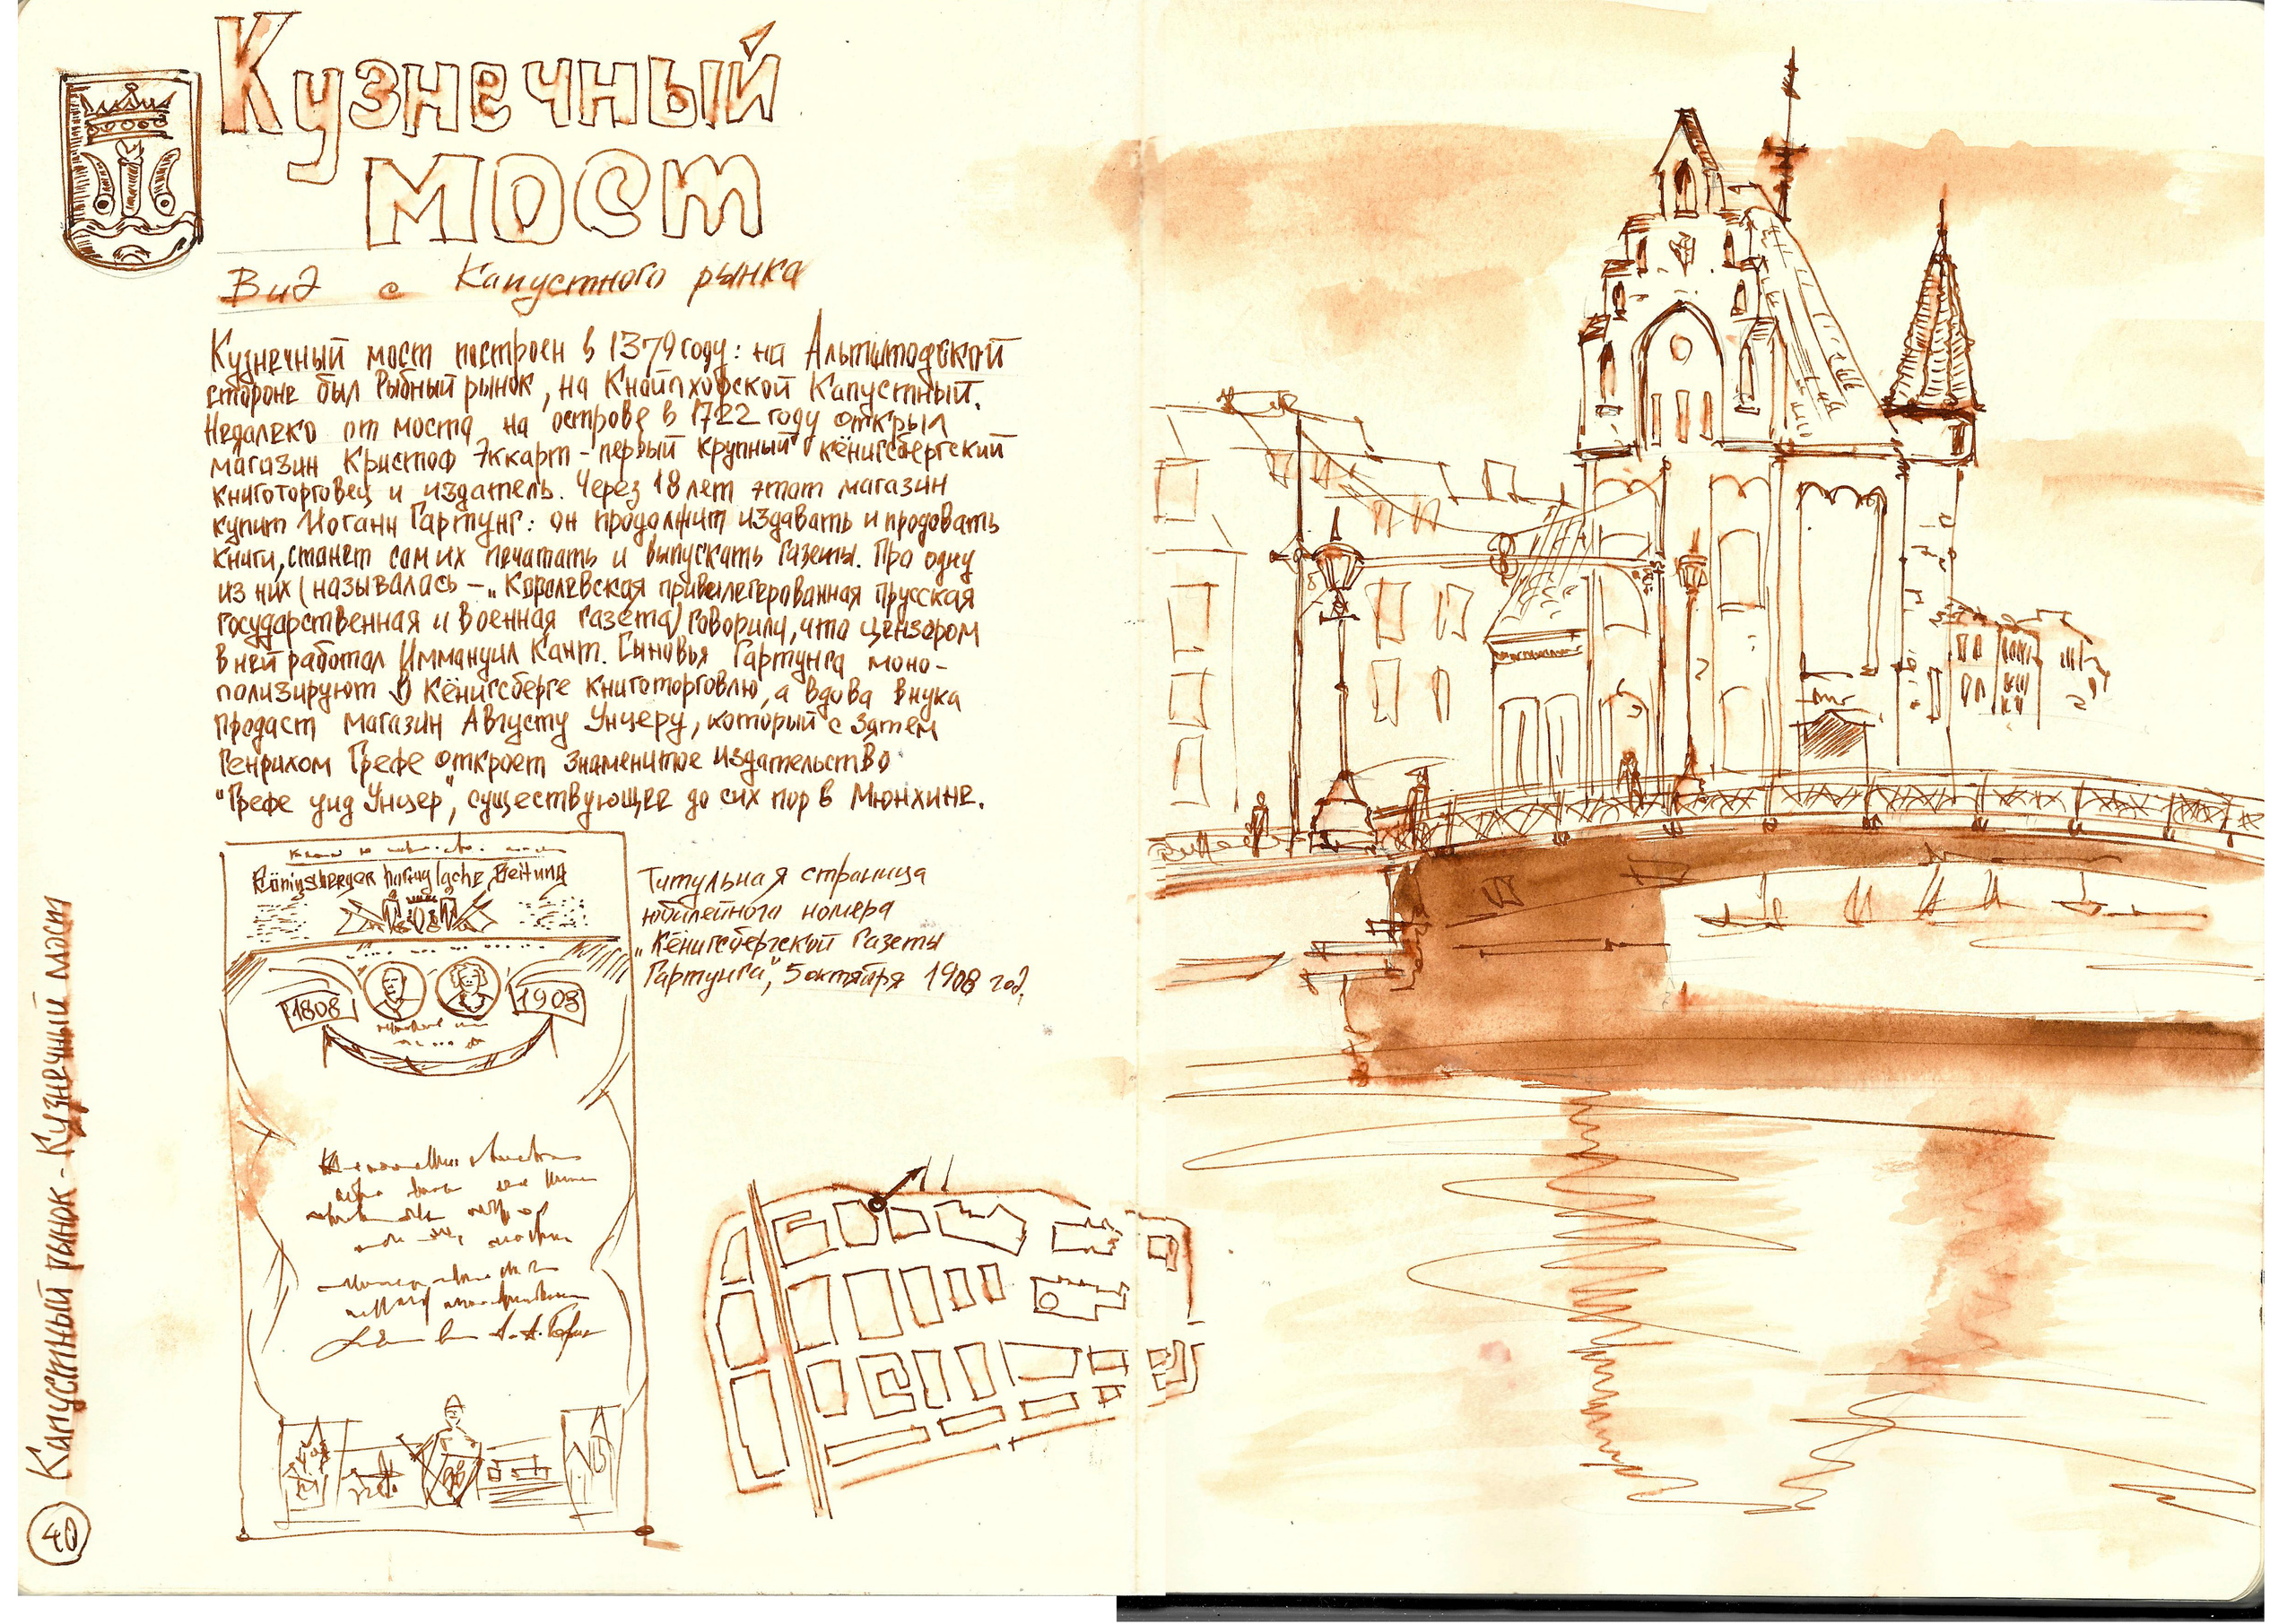 Кузнечный
мост
Вид с Капустного рынка
Кузнечный мост построен в 1379 году: на Альтштадской
стороне был Рыбный рынок, на Кнайпхофской Капустный.
Недалеко от моста на острове в 1722 году открыл
магазин Кристоф Эккарт - первый крупный кёнигсбергский
книготорговец и издатель. Через 18 лет этот магазин
купит Иоганн Гартунг: он продолжит издавать и продовать
книги, станет сам их печатать и выпускать газеты. Про одну
из них (называлась - „Королевская привелегерованная прусская
государственная и военная газета) говорили, что цензором
в ней работал Иммануил Кант. Сыновья Гартунга моно-
полизируют в Кёнигсберге книготорговлю, а вдова внука
продаст магазин Августу Унцеру, который с зятем
Генрихом Грефе откроет знаменитое издательство
"Грефе унд Унцер", существующее до сих пор в Мюнхине.
Königsberger Zeitung
1808 1908
Титульная страница
юбилейного номера
„Кёнигсбергской газеты
Гартунга", 5 октября 1908 год.
Капустный рынок - Кузнечный мост
40